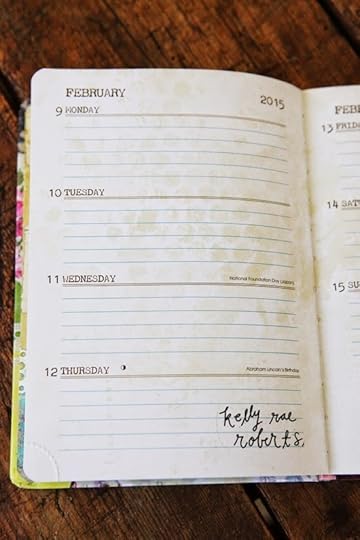 FEBRUARY
2015
9 MONDAY
10 TUESDAY
11 WEDNESDAY
National Foundation Day (Japan)
12 THURSDAY
Abraham Lincoln's Birthday
kelly rae
roberts
FEB
13 FRID
14 SAT
15 SU